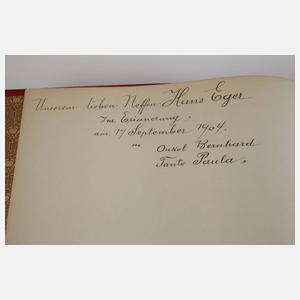 Unserem lieben Neffen Hans Eger
zur Erinnerung,
am 17 September 1904.
Onkel Bernhard
Tante Paula,